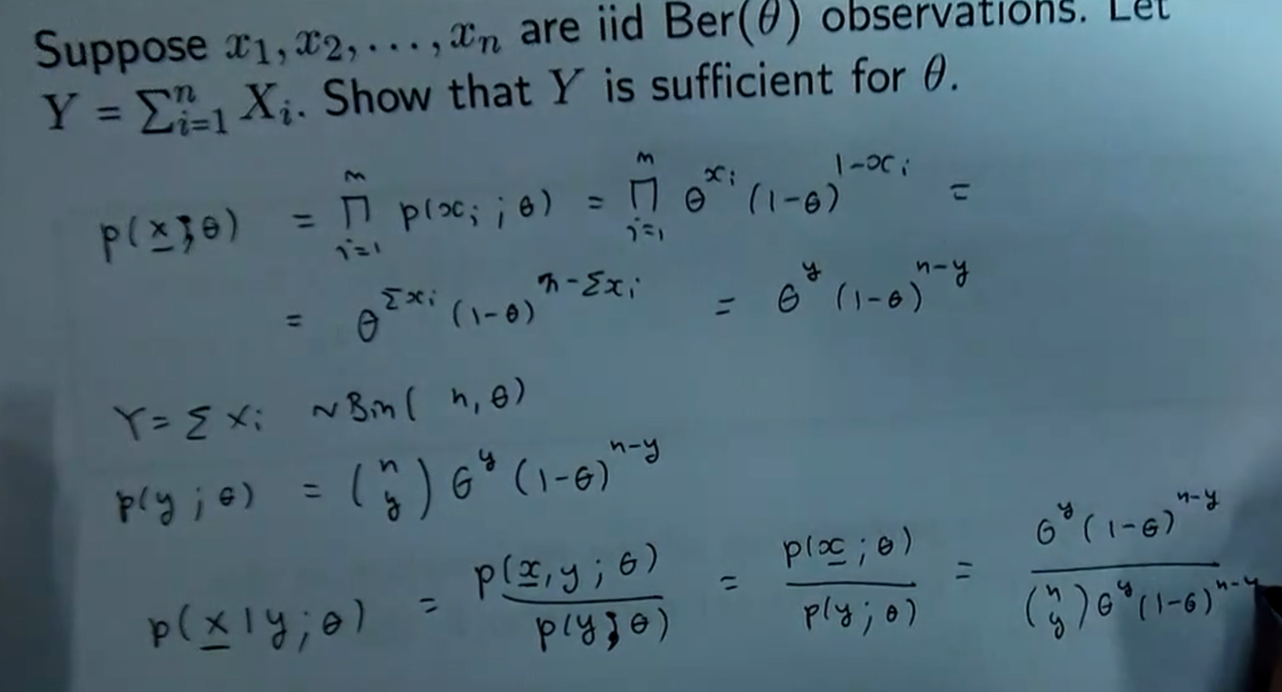 Suppose x₁, x₂, . . . , xₙ are iid Ber(θ) observations. Let
Y = ∑ⁿᵢ₌₁ Xᵢ. Show that Y is sufficient for θ.
p(x̲;θ) = ∏ⁿᵢ₌₁ p(xᵢ;θ) = ∏ⁿᵢ₌₁ θ^{xᵢ} (1-θ)^{1-xᵢ} =
= θ^{Σxᵢ} (1-θ)^{n-Σxᵢ} = θ^y (1-θ)^{n-y}
Y = Σ Xᵢ ~ Bin( n, θ)
p(y;θ) = (n y) θ^y (1-θ)^{n-y}
p(x̲|y;θ) = p(x̲,y;θ) / p(y;θ) = p(x̲;θ) / p(y;θ) = θ^y (1-θ)^{n-y} / (n y) θ^y (1-θ)^{n-y}